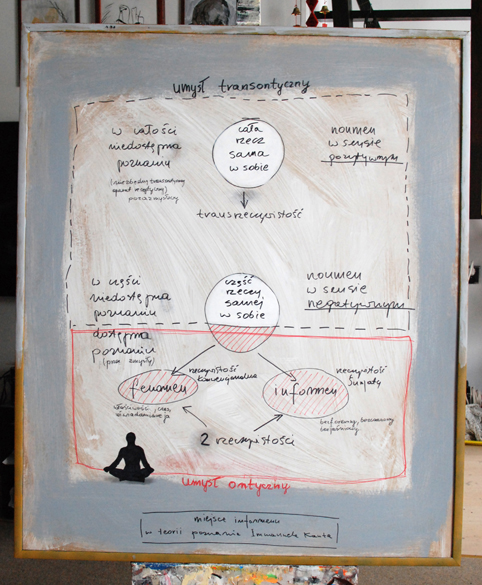 umysł transontyczny
w całości
niedostępna
poznaniu
(niezbędny transontyczny
aparat receptyczny)
pozazmysłowy
cała
rzecz
sama
w sobie
noumen
w sensie
pozytywnym
transrzeczywistość
w części
niedostępna
poznaniu
część
rzeczy
samej
w sobie
noumen
w sensie
negatywnym
dostępna
poznaniu
(poza zmysły)
rzeczywistość
konwencjonalna
fenomen
rzeczywistość
informen
bezforemny, bezczasowy
2 rzeczywistości
umysł ontyczny
miejsce informenu
w teorii poznania Immanuela Kanta